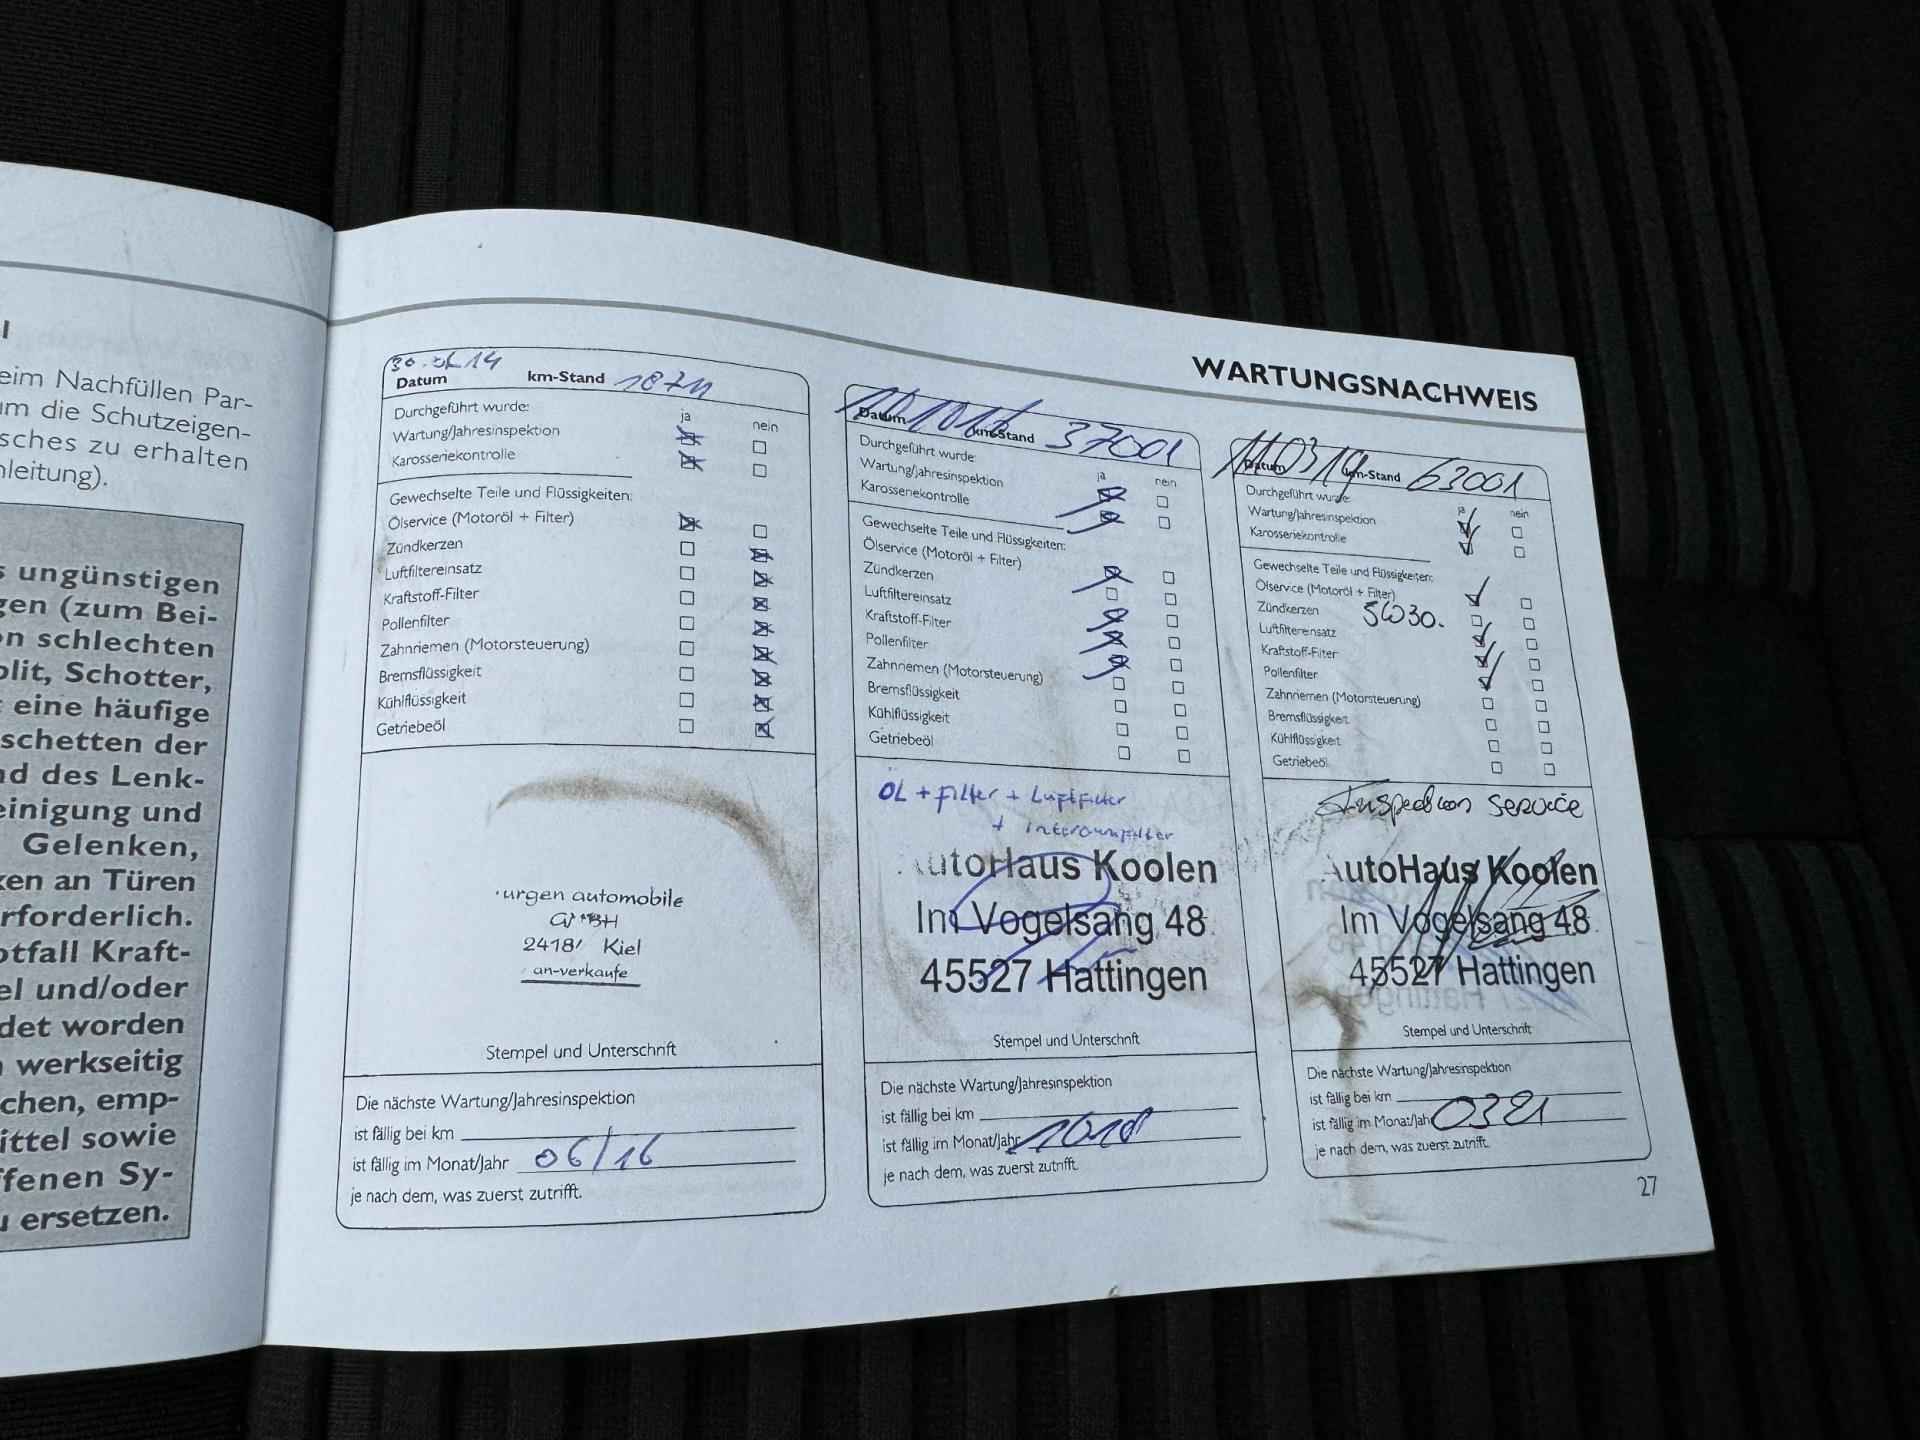 l
eim Nachfüllen Par-
um die Schutzeigen-
sches zu erhalten
nleitung).
s ungünstigen
gen (zum Bei-
on schlechten
olit, Schotter,
t eine häufige
schetten der
nd des Lenk-
einigung und
Gelenken,
ken an Türen
rforderlich.
otfall Kraft-
el und/oder
det worden
n werkseitig
chen, emp-
ittel sowie
ffenen Sy-
u ersetzen.
WARTUNGSNACHWEIS
Datum km-Stand
Durchgeführt wurde:
ja nein
Wartung/Jahresinspektion
Karosseriekontrolle
Gewechselte Teile und Flüssigkeiten:
Ölservice (Motoröl + Filter)
Zündkerzen
Luftfiltereinsatz
Kraftstoff-Filter
Pollenfilter
Zahnriemen (Motorsteuerung)
Bremsflüssigkeit
Kühlflüssigkeit
Getriebeöl
urgen automobile
GMBH
Kiel
an-verkaufe
Stempel und Unterschrift
Die nächste Wartung/Jahresinspektion
ist fällig bei km
ist fällig im Monat/Jahr 06/16
je nach dem, was zuerst zutrifft.
Datum km-Stand 37001
Durchgeführt wurde:
ja nein
Wartung/Jahresinspektion
Karosseriekontrolle
Gewechselte Teile und Flüssigkeiten:
Ölservice (Motoröl + Filter)
Zündkerzen
Luftfiltereinsatz
Kraftstoff-Filter
Pollenfilter
Zahnriemen (Motorsteuerung)
Bremsflüssigkeit
Kühlflüssigkeit
Getriebeöl
ÖL + Filter + Luftfilter
+ Interaumfilter
AutoHaus Koolen
Im Vogelsang 48
45527 Hattingen
Stempel und Unterschrift
Die nächste Wartung/Jahresinspektion
ist fällig bei km
ist fällig im Monat/Jahr 1018
je nach dem, was zuerst zutrifft.
110319
Datum km-Stand 63001
Durchgeführt wurde:
ja nein
Wartung/Jahresinspektion
Karosseriekontrolle
Gewechselte Teile und Flüssigkeiten:
Ölservice (Motoröl + Filter)
Zündkerzen 5W30.
Luftfiltereinsatz
Kraftstoff-Filter
Pollenfilter
Zahnriemen (Motorsteuerung)
Bremsflüssigkeit
Kühlflüssigkeit
Getriebeöl
Inspection Service
AutoHaus Koolen
Im Vogelsang 48
45527 Hattingen
Stempel und Unterschrift
Die nächste Wartung/Jahresinspektion
ist fällig bei km
ist fällig im Monat/Jahr 0321
je nach dem, was zuerst zutrifft.
27